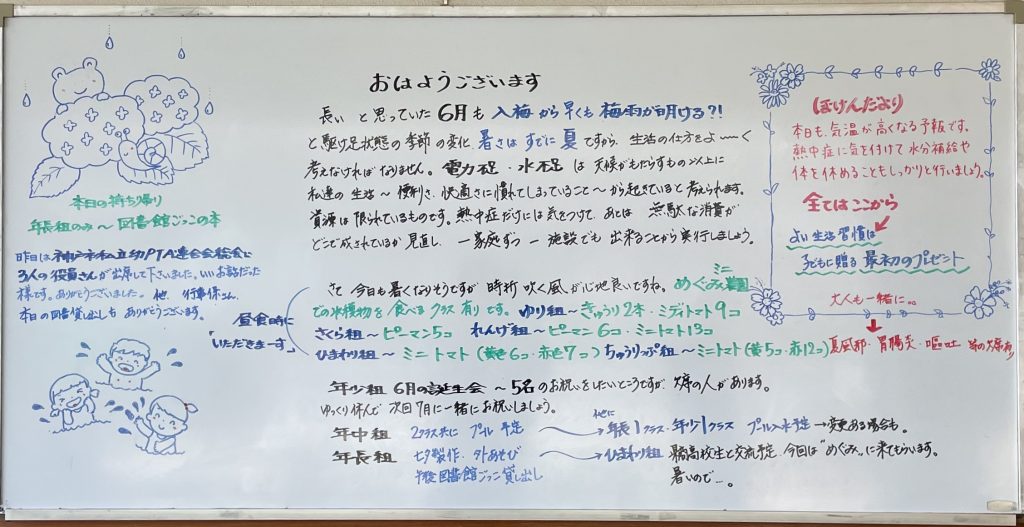 おはようございます
長い と思っていた 6月も 入梅から早くも 梅雨が明ける?!
と駆け足状態の季節の変化、暑さはすでに夏ですから、生活の仕方をよ〜〜く
考えなければなりません。電力不足・水不足は 天候がもたらすもの以上に
私達の 生活〜便利さ、快適さに慣れてしまっていること〜から起きていると考えられます。
資源は限られているものです。熱中症だけには気をつけて、あとは 無駄な消費が
どこで成されているか見直し、一家庭ずつ 一施設でも 出来ることから実行しましょう。
さて 今日も暑くなりそうですが 時折 吹く風が心地良いですね。めぐみミニ農園
での収穫物を食べるクラス有りです。ゆり組〜きゅうり2本・ミディトマト9コ
昼食時に
「いただきまーす」
さくら組〜ピーマン5コ れんげ組〜ピーマン6コ・ミニトマト13コ
ひまわり組〜ミニトマト(黄色6コ・赤色7コ) ちゅうりっぷ組〜ミニトマト(黄5コ・赤12コ)
年少組 6月の誕生会〜5名のお祝いをしたいところですが、欠席の人があります。
ゆっくり休んで 次回7月に一緒にお祝いしましょう。
年中組 2クラス共に プール予定
他に
年長1クラス・年少1クラス プール入水予定→変更ある場合も。
年長組 七夕製作・外あそび
午後 図書館ごっこ 貸し出し
ひまわり組 高校生と交流予定 今回は"めぐみ"に来てもらいます。
暑いので…。
本日の持ち帰り
年長組のみ〜図書館ごっこの本
昨日は神戸市私立幼PTA連合会総会に
3人の役員さんが出席して下さいました。いいお話だった
様です。ありがとうございました。他、行事係さん、
本日の図書貸し出しも ありがとうございます。
ほけんだより
本日も、気温が高くなる予報です。
熱中症に気を付けて 水分補給や
体を休めることもしっかりと行いましょう。
全てはここから
よい生活習慣は
子どもに贈る 最初のプレゼント
大人も一緒に。。
夏風邪・胃腸炎・嘔吐 等の欠席有り